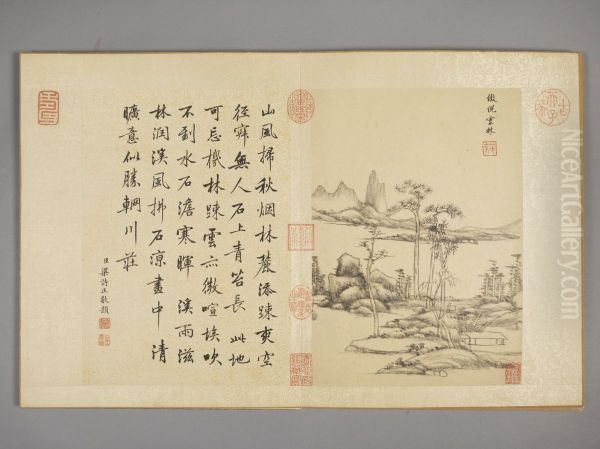 倣倪雲林
山風掃秋烟林麓添踈爽空
径寂無人石上青苔長 此地
可忘機林踈雲亦微喧埃吹
不到水石澹寒暉 溪雨滋
林润溪風拂石凉畫中清
曠意似勝輞川莊
臣梁詩正敬題
NiceArtGallery.com